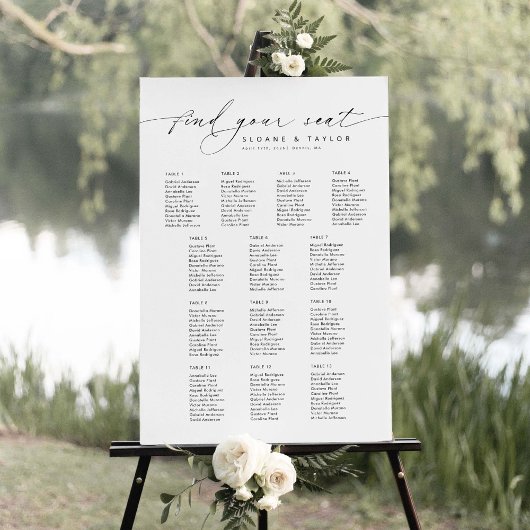 find your seat
SLOANE & TAYLOR
TABLE 1
Gabriel Anderson
David Anderson
Annabelle Lee
Gustavo Plant
Miguel Rodriguez
Rosa Rodriguez
Donatella Murano
Victor Murano
Michelle Jefferson
TABLE 2
Miguel Rodriguez
Rosa Rodriguez
Donatella Murano
Victor Murano
Michelle Jefferson
David Anderson
Annabelle Lee
Gustavo Plant
Caroline Plant
TABLE 3
Michelle Jefferson
Gabriel Anderson
David Anderson
Annabelle Lee
Gustavo Plant
Miguel Rodriguez
Rosa Rodriguez
Donatella Murano
Victor Murano
TABLE 4
Gustavo Plant
Caroline Plant
Miguel Rodriguez
Rosa Rodriguez
Donatella Murano
Michelle Jefferson
Gabriel Anderson
David Anderson
Annabelle Lee
TABLE 5
Gustavo Plant
Caroline Plant
Miguel Rodriguez
Rosa Rodriguez
Donatella Murano
Victor Murano
Michelle Jefferson
David Anderson
Annabelle Lee
TABLE 6
Gabriel Anderson
David Anderson
Annabelle Lee
Gustavo Plant
Caroline Plant
Rosa Rodriguez
Donatella Murano
Victor Murano
Michelle Jefferson
TABLE 7
Miguel Rodriguez
Rosa Rodriguez
Donatella Murano
Michelle Jefferson
Gabriel Anderson
David Anderson
Annabelle Lee
Gustavo Plant
Caroline Plant
TABLE 8
Donatella Murano
Victor Murano
Michelle Jefferson
Gabriel Anderson
David Anderson
Annabelle Lee
Gustavo Plant
Caroline Plant
Rosa Rodriguez
TABLE 9
Michelle Jefferson
Gabriel Anderson
David Anderson
Annabelle Lee
Gustavo Plant
Caroline Plant
Miguel Rodriguez
Donatella Murano
Victor Murano
TABLE 10
Gustavo Plant
Caroline Plant
Miguel Rodriguez
Donatella Murano
Victor Murano
Michelle Jefferson
Gabriel Anderson
David Anderson
Annabelle Lee
TABLE 11
Annabelle Lee
Gustavo Plant
Caroline Plant
Miguel Rodriguez
Rosa Rodriguez
Donatella Murano
Victor Murano
Michelle Jefferson
Gabriel Anderson
David Anderson
TABLE 12
Miguel Rodriguez
Rosa Rodriguez
Donatella Murano
Victor Murano
Michelle Jefferson
Gabriel Anderson
David Anderson
Annabelle Lee
Gustavo Plant
Caroline Plant
TABLE 13
Gabriel Anderson
David Anderson
Annabelle Lee
Gustavo Plant
Caroline Plant
Miguel Rodriguez
Rosa Rodriguez
Donatella Murano
Victor Murano